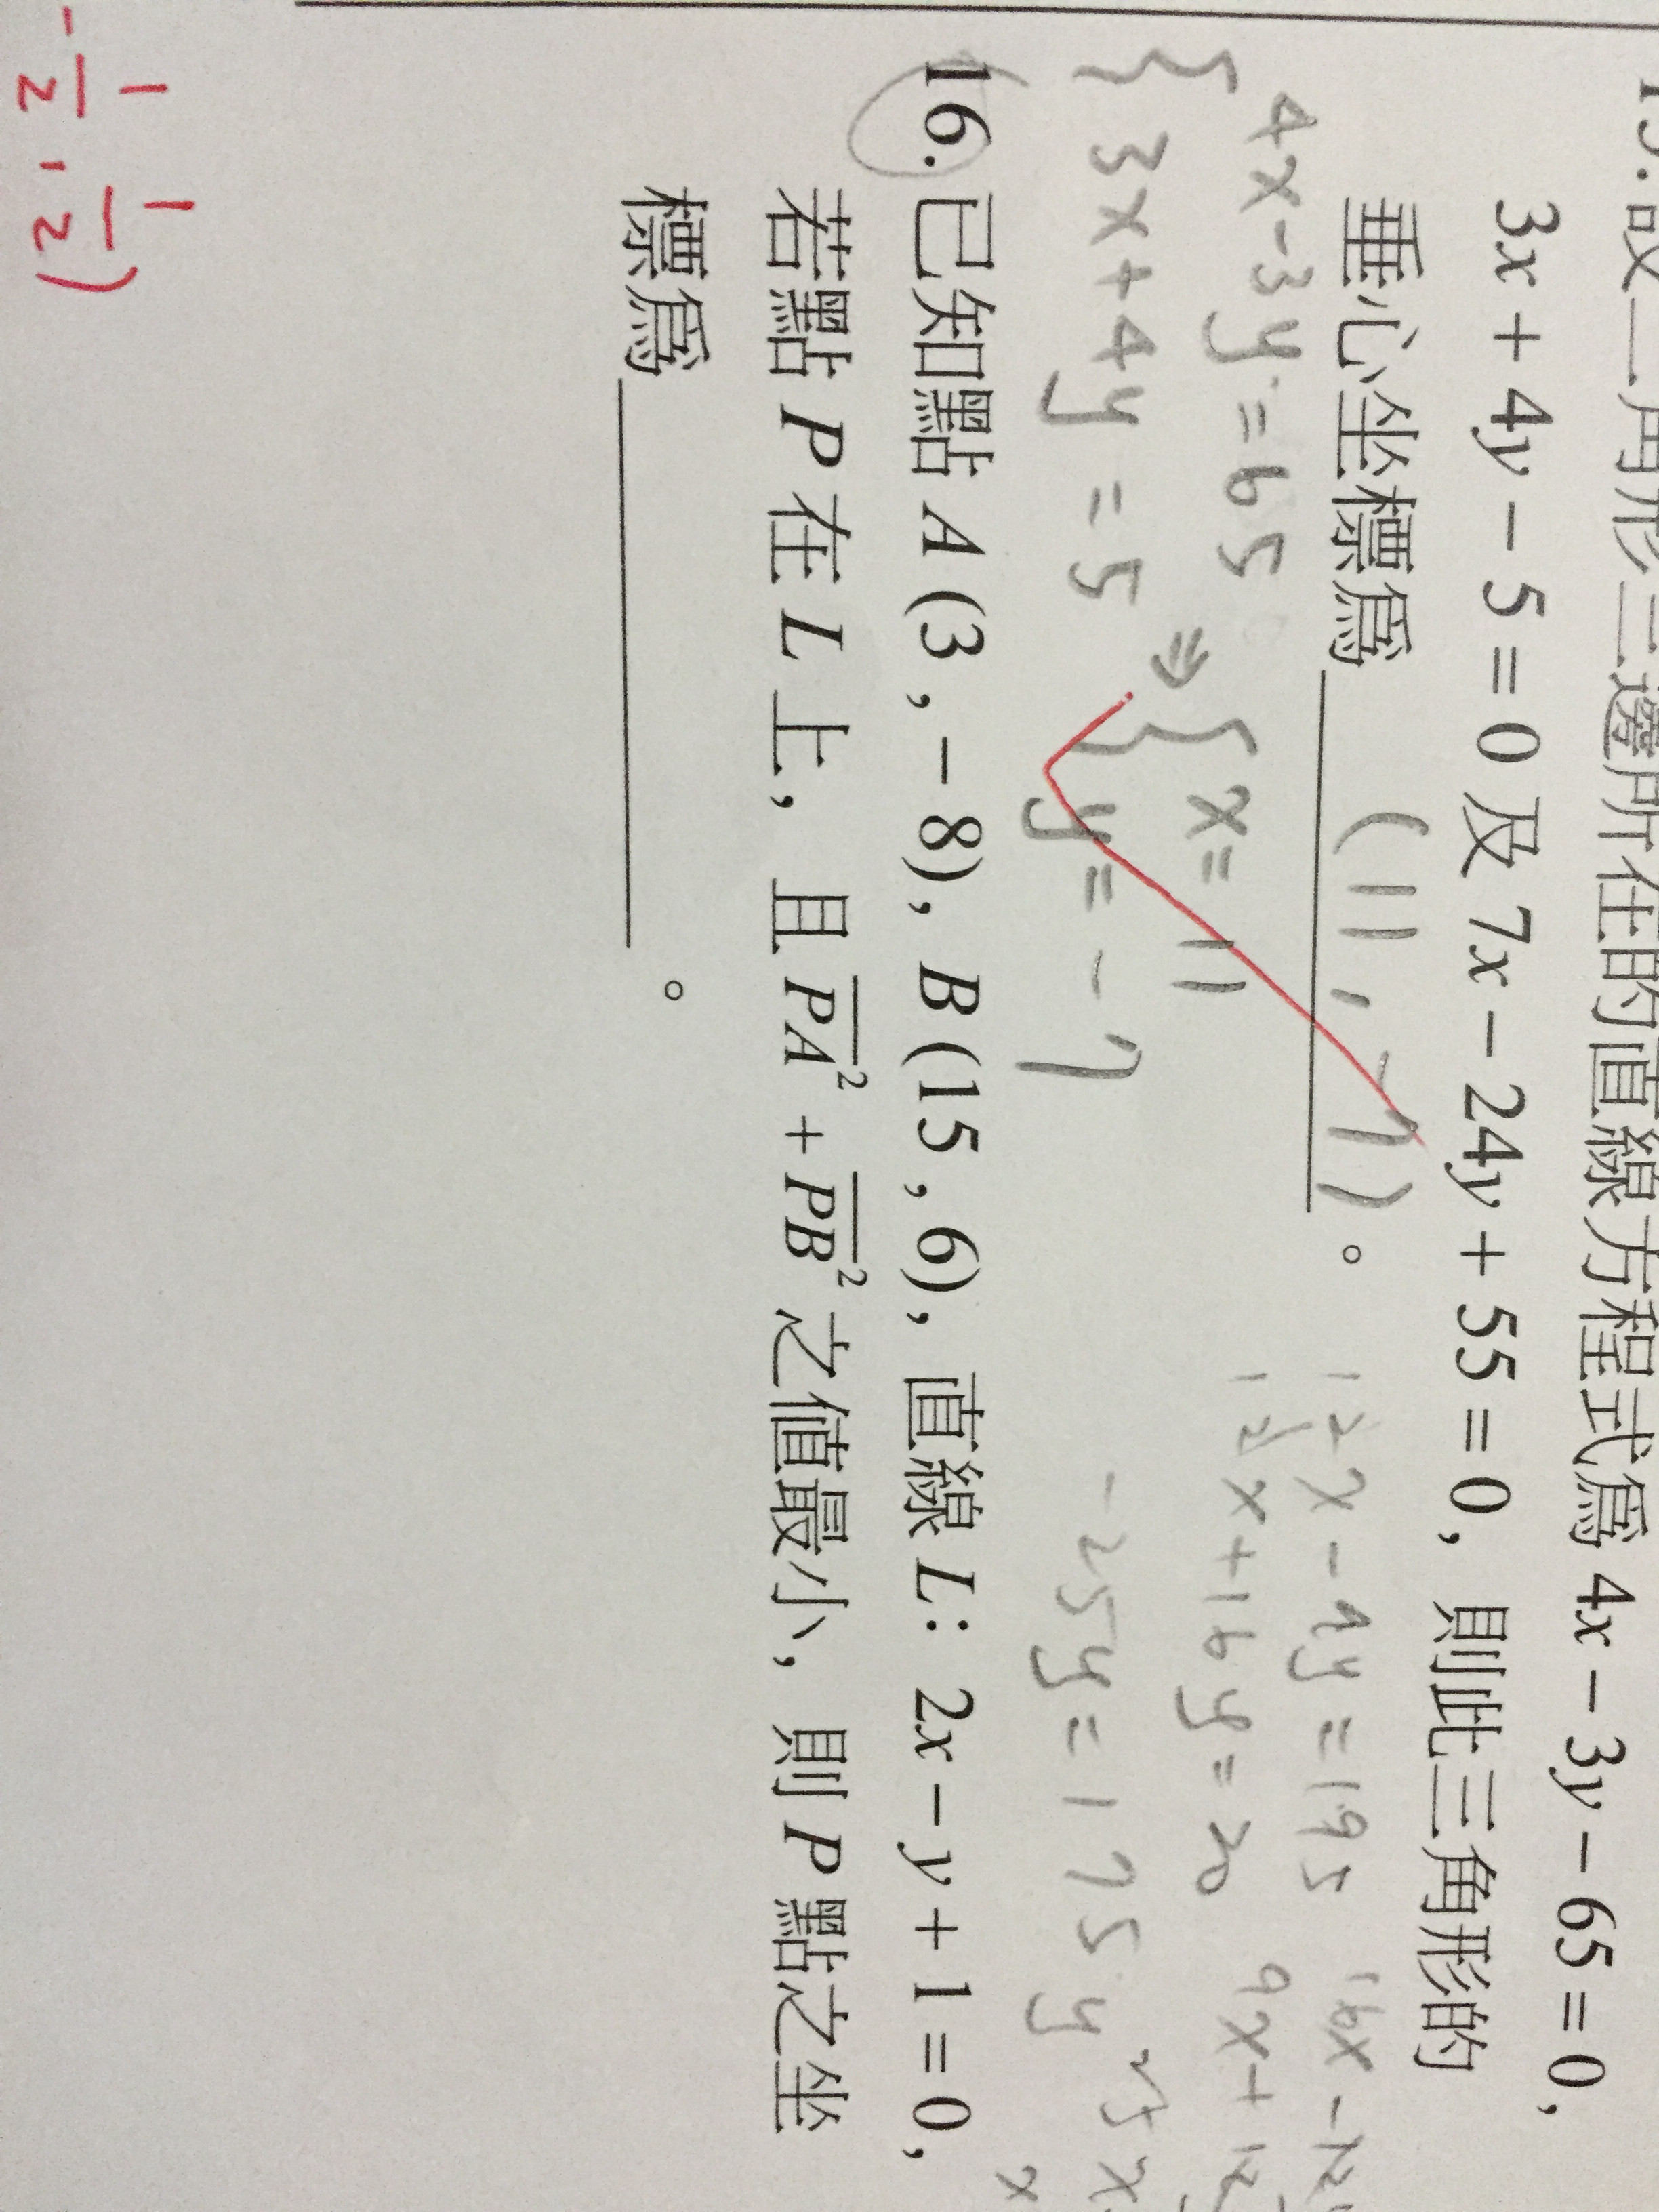 設三角形三邊所在的直線方程式為 4x − 3y − 65 = 0,
3x + 4y − 5 = 0 及 7x − 24y + 55 = 0, 則此三角形的
垂心坐標為 (11, -7)。
4x - 3y = 65
3x + 4y = 5
⇒
x = 11
y = -7
12x - 9y = 195
12x + 16y = 20
-25y = 175
16x - 12y
9x + 12
16. 已知點 A (3 , − 8), B (15 , 6), 直線 L: 2x − y + 1 = 0,
若點 P 在 L 上, 且 PA² + PB² 之值最小, 則 P 點之坐
標為 。
- 1/2 , 1/2 )